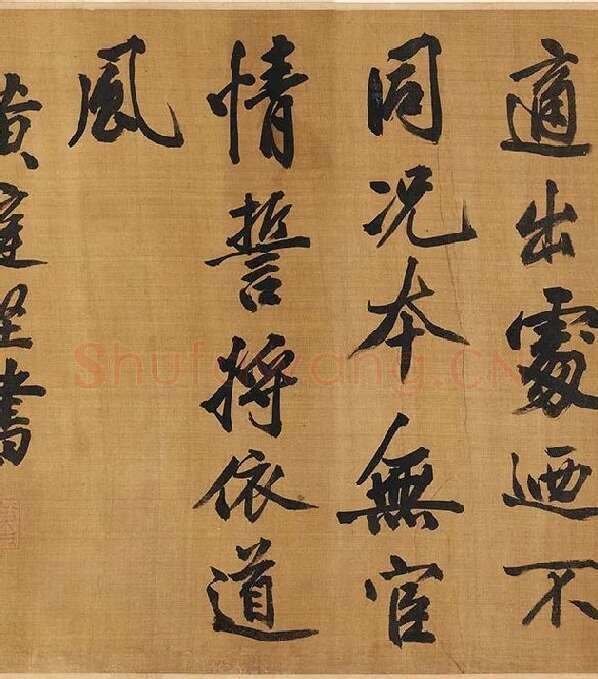 適出處迺不
同况本無宦
情誓将依道
風
黄庭堅書
ShufaWang.CN